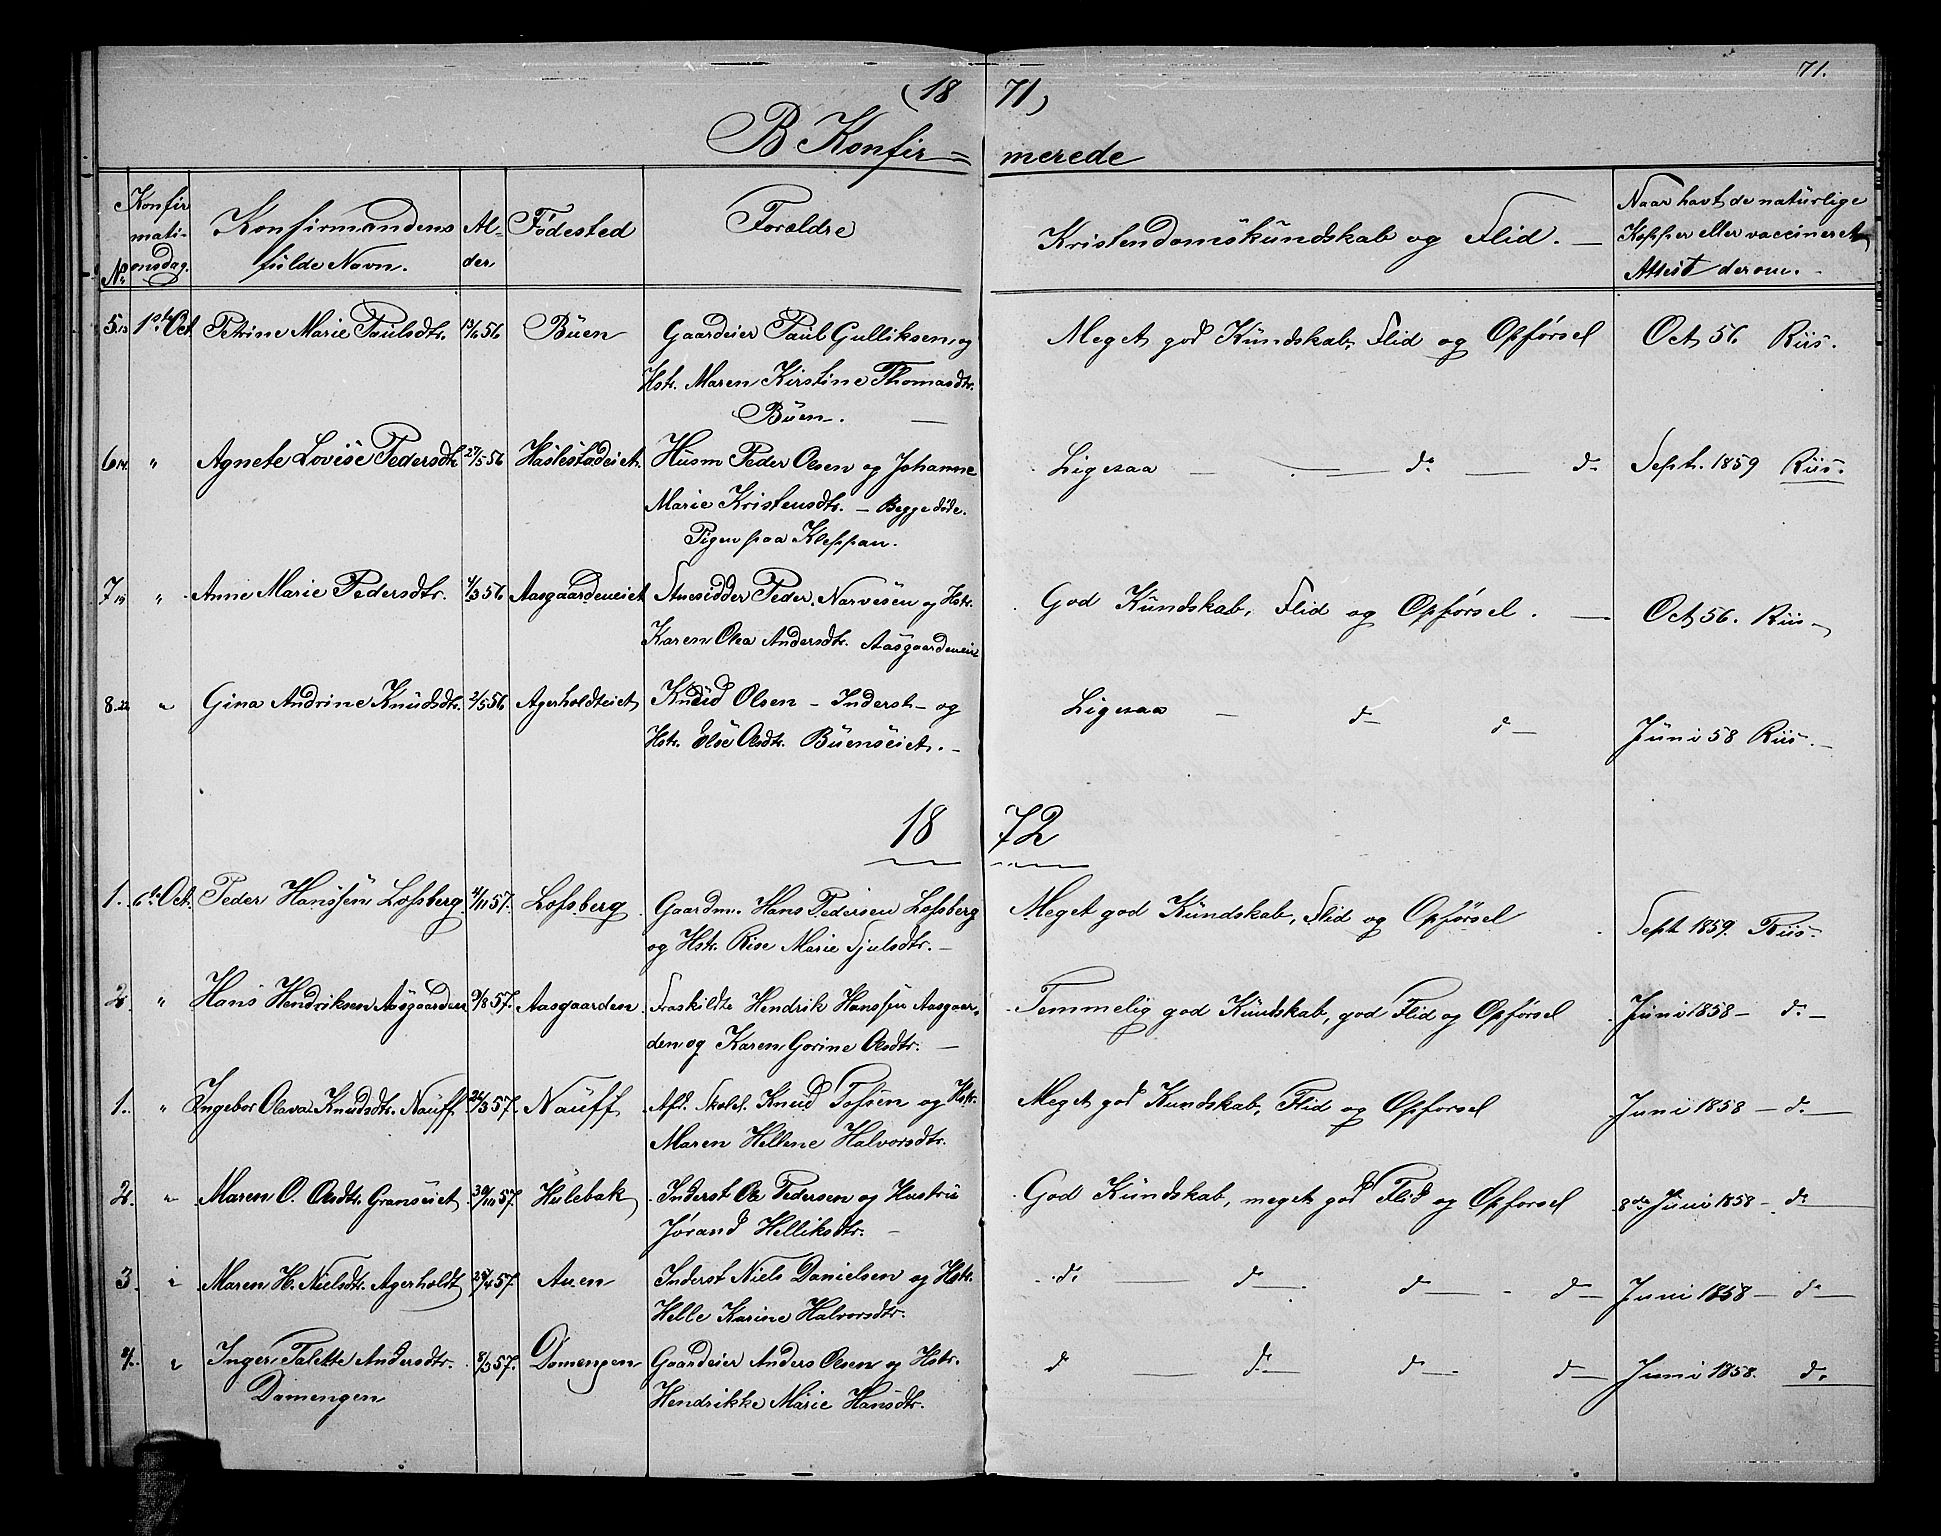 71.
(18 71)
B Konfir= merede
No Konfirmationsdag. Konfirmandens fulde Navn. Alder Födested Forældre Kristendomskundskab og Flid. — Naar havt de naturlige Kopper eller vaccineret, Attest derom. -
5. 13 1ste Oct. Petrine Marie Paulsdtr. 56 Büen Gaardeier Paul Gulliksen og Meget god Kundskab, Flid og Opførsel Oct 56 Riis.
Hstr. Maren Kirstine Thomasdtr.
Büen. —
6 14 " Agnete Lovise Pedersdtr. 27/5 56 Haslestadeiet. Husm Peder Olsen og Johanne Ligesaa — — do — do Sept. 1859 Riis.
Marie Kristensdtr. — Begge døde.
Pigen paa Kleppan.
7 " Anne Marie Pedersdtr. 4/3 56 Aasgaardeneiet Stuesidder Peder Narvesen og Hstr. God Kundskab, Flid og Opførsel. — Oct 56. Riis
Karen Olea Andersdtr. Aasgaardeneiet
8. 22 " Gina Andrine Knudsdtr. 2/5 56 Agerholdteiet Knud Olsen - Inderst - og Ligesaa - do do - Juni 58 Riis. -
Hstr. Else Olsdtr. Buenseiet. -
18 72
1. 6te Oct. Peder Hanssen Lofsberg 4/11 57. Lofsberg Gaardm. Hans Pedersen Lofsberg Meget god Kundskab, Flid og Opførsel Sept 1859. Riis.
og Hstr. Rise Marie Sjulsdtr. -
2. " Hans Hendriksen Aasgaarden 9/8 57. Aasgaarden Fraskildte Hendrik Hanssen Aasgaar- Temmelig god Kundskab, god Flid og Opførsel Juni 1858 - do -
den og Karen Gorine Olsdtr. —
1. " Ingebor Olava Knudsdtr. Nauff. 57. Nauff Afd. Skolel. Knud Tofsen og Hstr. Meget god Kundskab, Flid og Opførsel Juni 1858 - do —
Maren Hellene Halvorsdtr.
2. " Maren O. Olsdtr. Granseiet 30/10 57. Hulebak Inderst Ole Pedersen og Hustru God Kundskab, meget god Flid og Opførsel 8de Juni 1858 - do
Jørand Helliksdtr. -
3 " Maren H. Nielsdtr. Agerholdt 57. Auen Inderst Niels Danielsen og Hstr. do — do — do — do — Juni 1858 - do —
Helle Karine Halvorsdtr.
4. " Inger Talette Andersdtr. 8/3 57. Domengen Gaardeier Anders Olsen og Hstr. do — do do — do — Juni 1858. do
Damengen Hendrikke Marie Hansdtr.